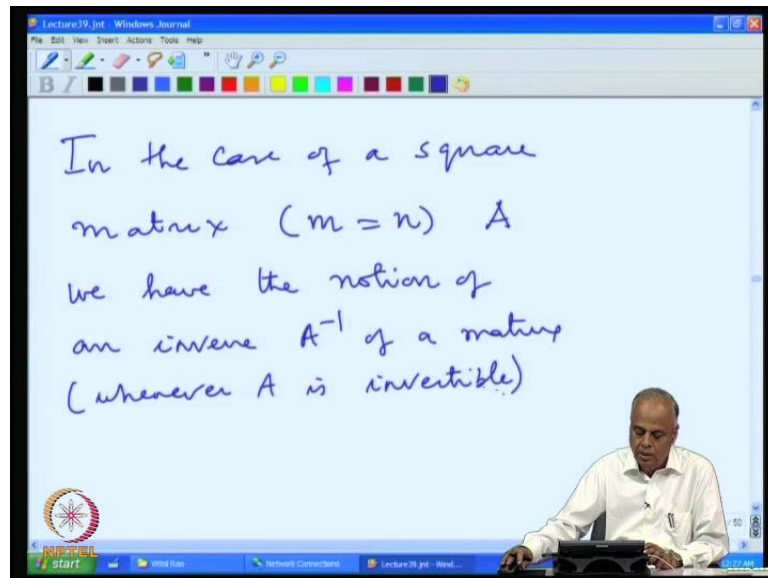 Lecture39.jnt - Windows Journal
File Edit View Insert Actions Tools Help
B I
In the case of a square
matrix (m = n) A
we have the notion of
an inverse A⁻¹ of a matrix
(whenever A is invertible)
/ 50
NPTEL
start Vittal Rao Network Connections Lecture39.jnt - Wind... 12:27 AM